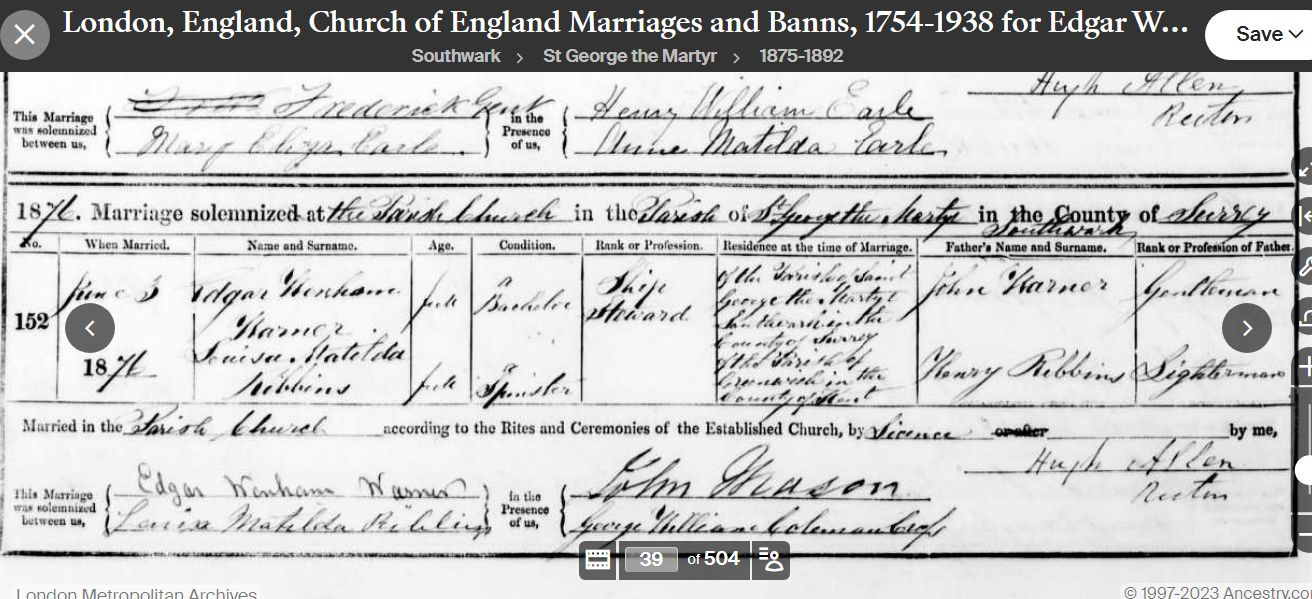 London, England, Church of England Marriages and Banns, 1754-1938 for Edgar W...
Save
Southwark > St George the Martyr > 1875-1892
Hugh Allen
Rector
This Marriage was solemnized between us,
Frederick Gent
Mary Eliza Earle
in the Presence of us,
Henry William Earle
Anne Matilda Earle
1876. Marriage solemnized at the Parish Church in the Parish of St George the Martyr in the County of Surrey
Southwark
No. When Married. Name and Surname. Age. Condition. Rank or Profession. Residence at the time of Marriage. Father's Name and Surname. Rank or Profession of Father.
152
June 3
1876
Edgar Wenham
Warner
full
a
Bachelor
Ship
Steward
Of the Parish of Saint
George the Martyr
Southwark in the
County of Surrey
John Warner
Gentleman
Louisa Matilda
Ribbins
full
a
Spinster
of the Parish of
Greenwich in the
County of Kent
Henry Ribbins
Lighterman
Married in the Parish Church according to the Rites and Ceremonies of the Established Church, by Licence or after by me,
Hugh Allen
Rector
This Marriage was solemnized between us,
Edgar Wenham Warner
Louisa Matilda Ribbins
in the Presence of us,
John Mason
George William Coleman
39 of 504
London Metropolitan Archives
© 1997-2023 Ancestry.co